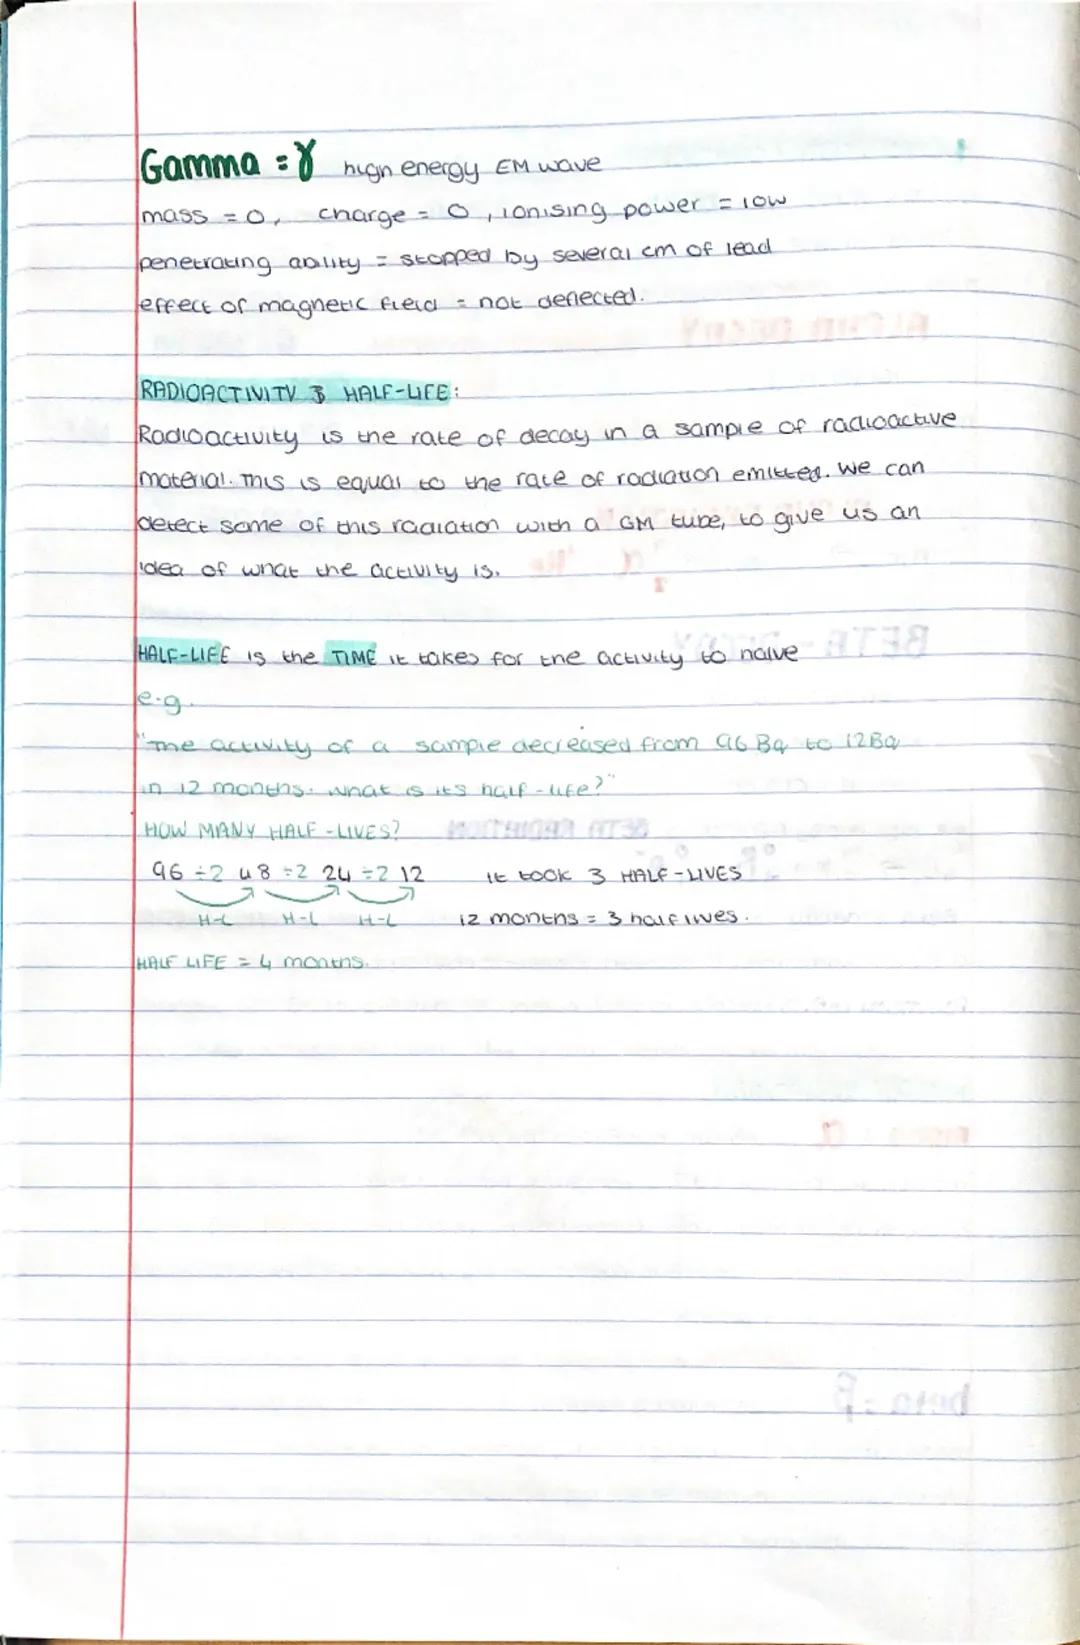 Gamma = γ high energy EM wave
mass = 0, charge = 0, ionising power = low
penetrating ability = stopped by several cm of lead
effect of magnetic field = not deflected.
RADIOACTIVITY & HALF-LIFE:
Radioactivity is the rate of decay in a sample of radioactive
material. This is equal to the rate of radiation emitted. We can
detect some of this radiation with a GM tube, to give us an
idea of what the activity is.
HALF-LIFE is the TIME it takes for the activity to halve
e.g.
"The activity of a sample decreased from 96 Bq to 12Bq
in 12 months. what is its half-life?"
HOW MANY HALF-LIVES?
96 ÷2 48 ÷2 24 ÷2 12 it took 3 HALF-LIVES
H-L H-L H-L 12 months = 3 half lives.
HALF LIFE = 4 months.